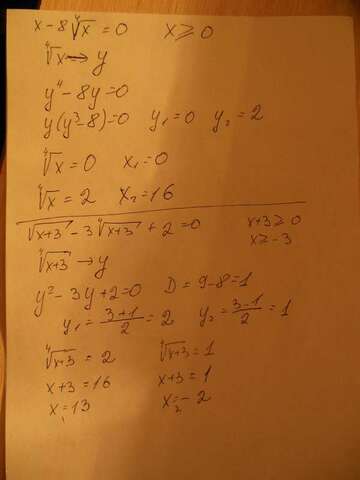 x - 8∜x = 0   x ≥ 0
∜x → y
y⁴ - 8y = 0
y(y³ - 8) = 0   y₁ = 0   y₂ = 2
∜x = 0   x₁ = 0
∜x = 2   x₂ = 16
√x+3 - 3∜x+3 + 2 = 0   x+3 ≥ 0
x ≥ -3
∜x+3 → y
y² - 3y + 2 = 0   D = 9 - 8 = 1
y₁ = (3+1)/2 = 2   y₂ = (3-1)/2 = 1
∜x+3 = 2   ∜x+3 = 1
x+3 = 16   x+3 = 1
x₁ = 13   x₂ = -2